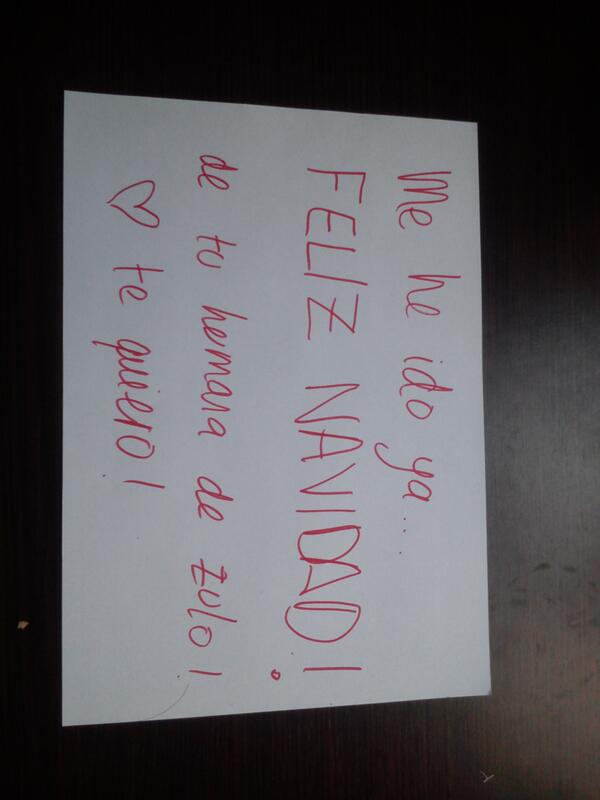 Me he ido ya...
FELIZ NAVIDAD!
de tu hemana de zulo!
♡ te quiero!